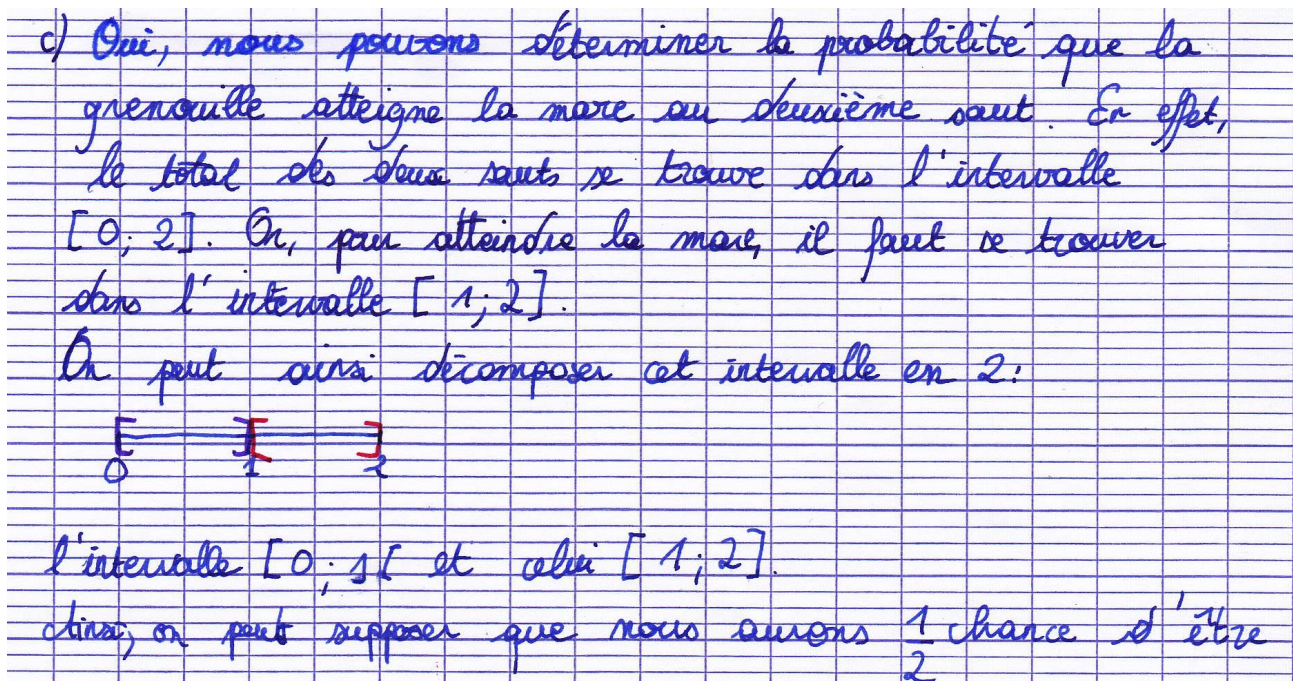 c) Oui, nous pouvons déterminer la probabilité que la
grenouille atteigne la mare au deuxième saut. En effet,
le total des deux sauts se trouve dans l'intervalle
[0; 2]. Or, pour atteindre la mare, il faut se trouver
dans l'intervalle [1; 2].
On peut ainsi décomposer cet intervalle en 2:
0 1 2
l'intervalle [0; 1[ et celui [1; 2].
Ainsi, on peut supposer que nous aurons 1/2 chance d'être